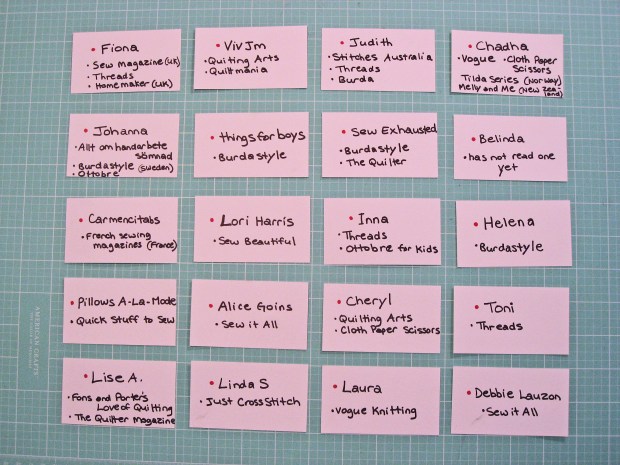 • Fiona
• Sew Magazine (UK)
• Threads
• Homemaker (UK)
• VivJm
• Quilting Arts
• Quiltmania
• Judith
• Stitches Australia
• Threads
• Burda
• Chadha
• Vogue • Cloth Paper
Scissors
Tilda Series (Norway)
Melly and Me (New Zea-
land)
• Johanna
• Allt om handarbete
sömnad
• Burdastyle (Sweden)
• Ottobre
• thingsforboys
• Burdastyle
• Sew Exhausted
• Burdastyle
• The Quilter
• Belinda
• has not read one
yet
• Carmencitabs
• French sewing
magazines (France)
• Lori Harris
• Sew Beautiful
• Inna
• Threads
• Ottobre for Kids
• Helena
• Burdastyle
• Pillows A-La-Mode
• Quick Stuff to Sew
• Alice Goins
• Sew it All
• Cheryl
• Quilting Arts
• Cloth Paper Scissors
• Toni
• Threads
• Lise A.
• Fons and Porter's
Love of Quilting
• The Quilter Magazine
• Linda S
• Just CrossStitch
• Laura
• Vogue Knitting
• Debbie Lauzon
• Sew it All
AMERICAN CRAFTS